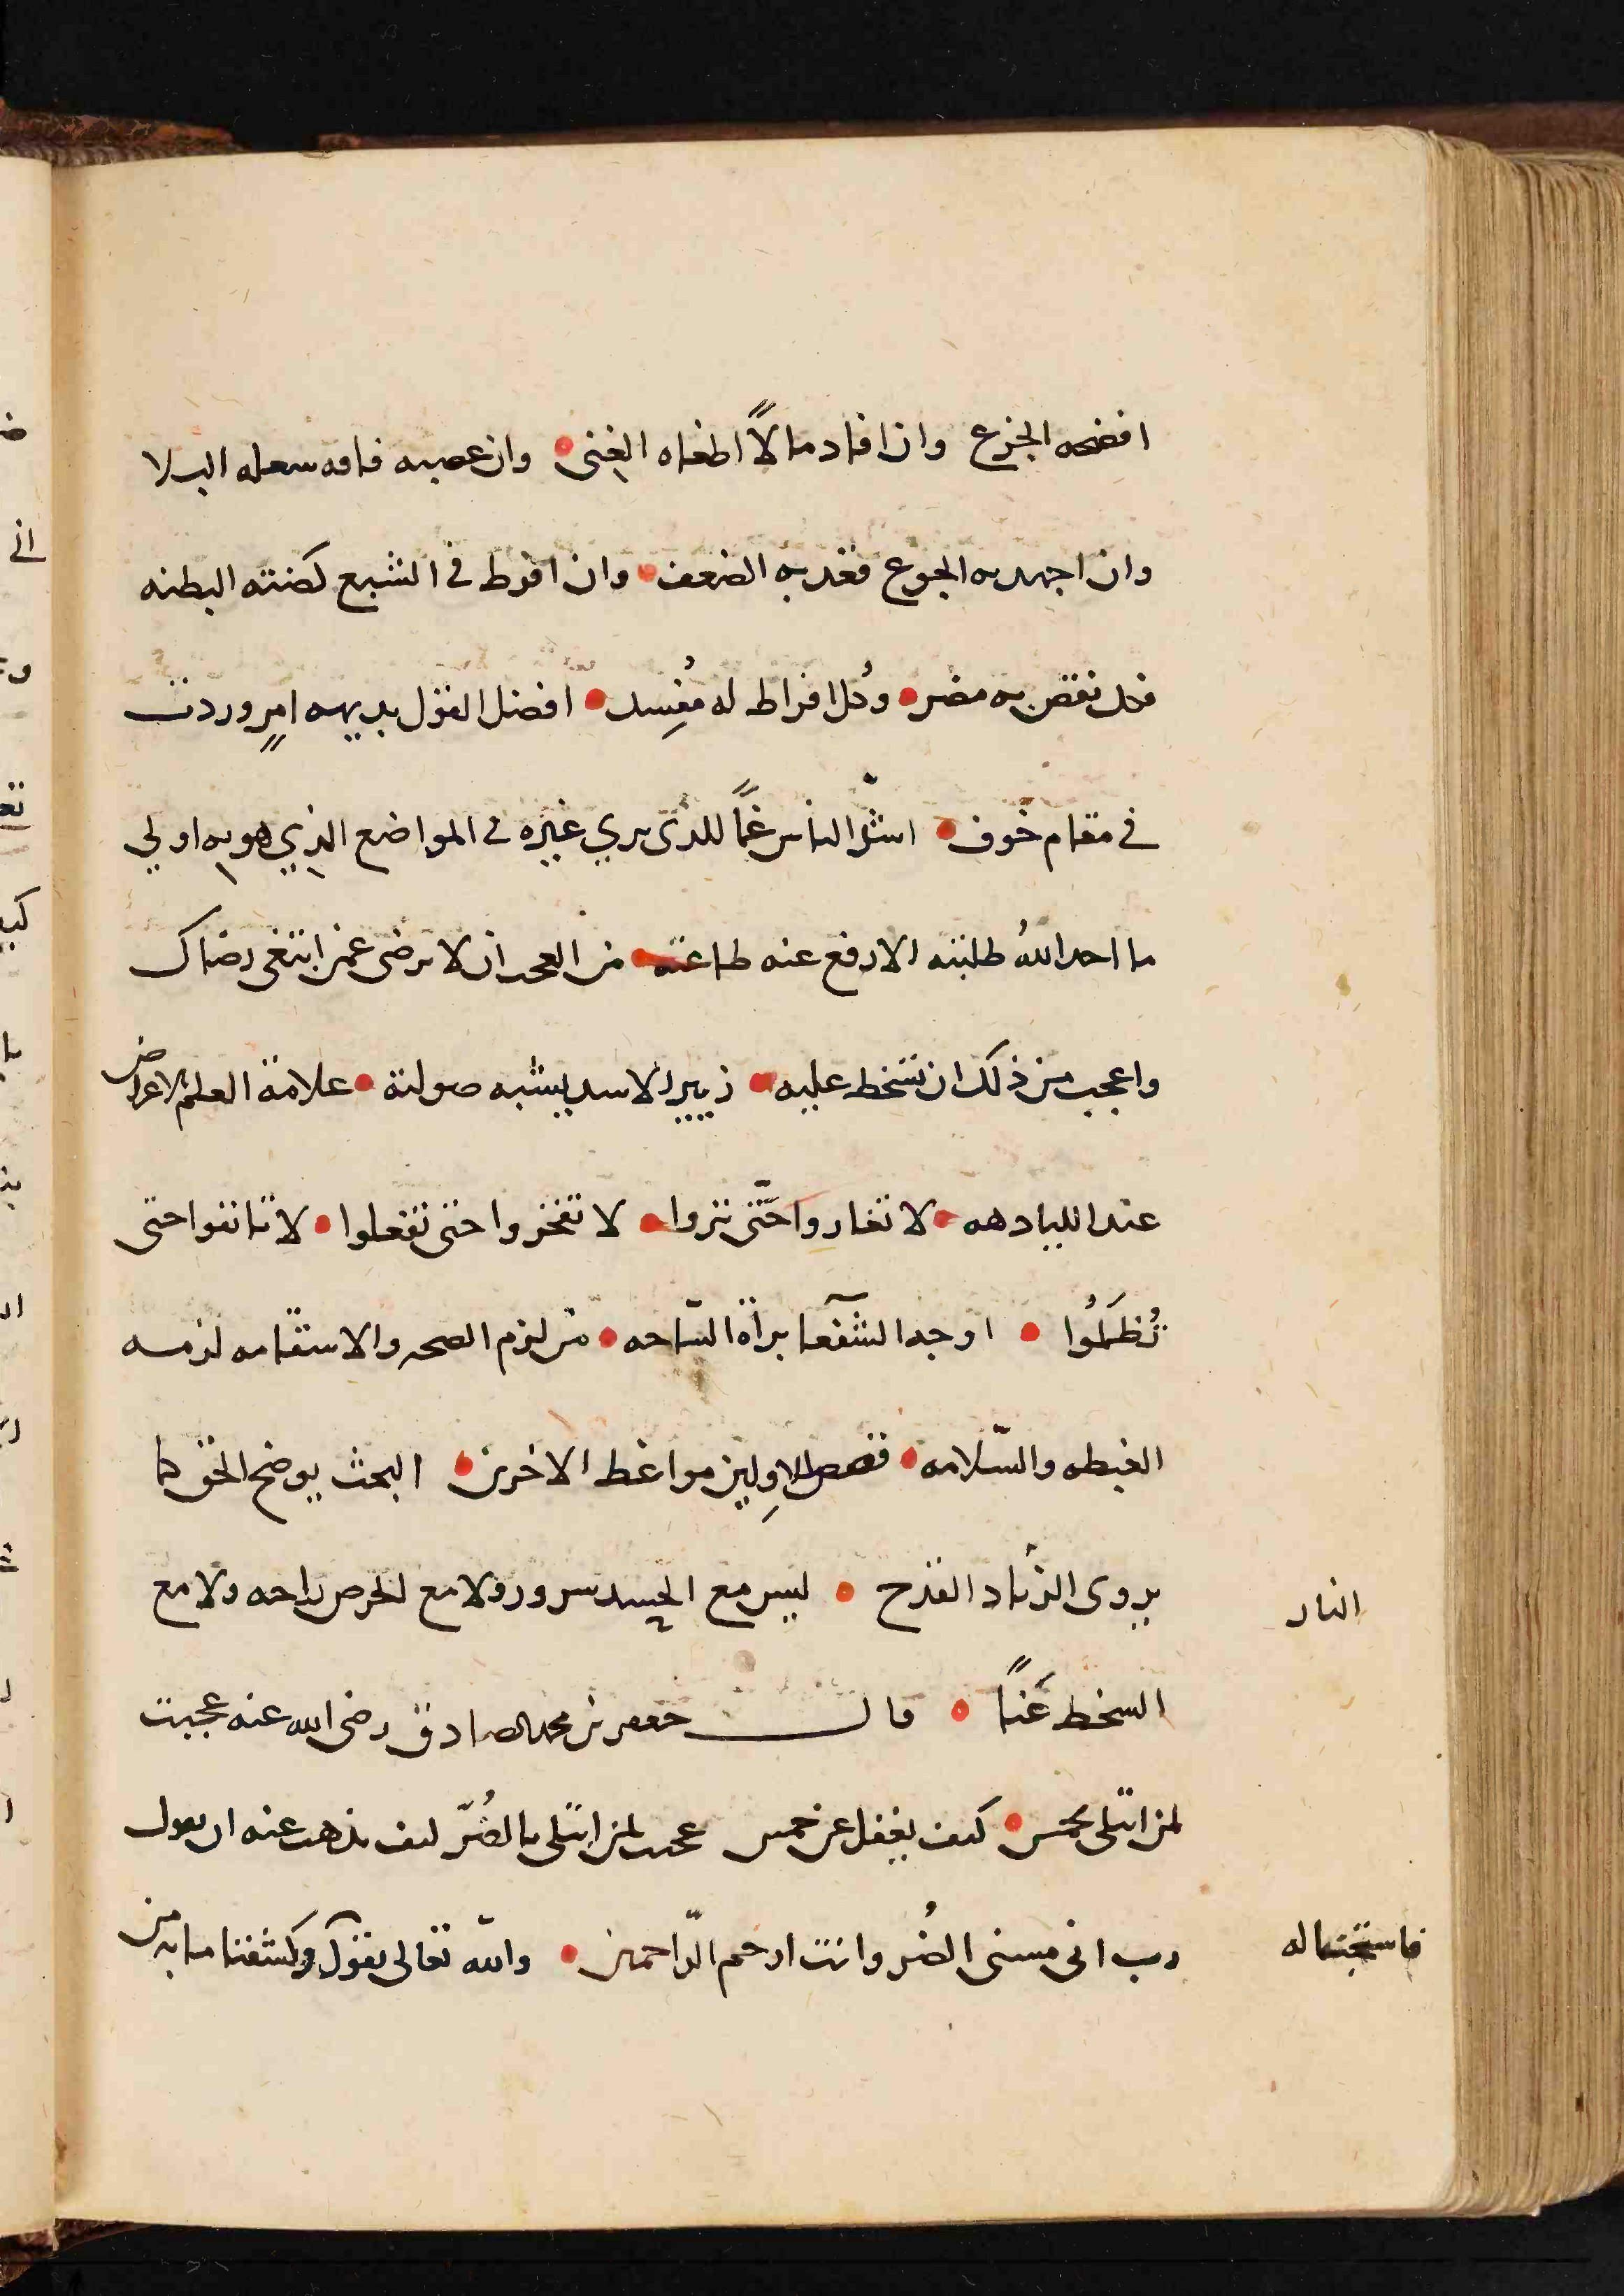 افضحه الجزع وان افاد مالًا اطغاه الغنى • وان عصبه فاقه سعله البلا
وان اجهد به الجوع فقد به الضعف • وان افرط في الشبع لضته البطنه
فكل نقص به مضر • وكُل افراط له مفُسِد • افضل القول بديهه امرٍ وردت
في مقام خوف • اشدّ الناس غمًّا للذى يري غيره في المواضع الذي هو به اولي
ما احد اللهُ طلبته الا رفع عنه طاعته • من العجز ان لا ترضى عمن ابتغى رضاك
واعجب من ذلك ان تسخط عليه • زيير الاسد يشبه صولته • علامة العلم الاعراض
عند اللبادهه • لا تغاروا حتّى تروا • لا تفخروا حتى تفعلوا • لا تانفوا حتى
تُظلَمُوا • اوجد الشفعآ براة السّاحه • من لزم الصحه والاستقامه لزمه
الغبطه والسّلامه • قصص الاولِين مواعظ الاخرين • البحث يوضح الحق كما
يروى الزناد القدح • ليس مع الحسد سرور ولا مع الحرص راحه ولا مع
النار
السخط غَنًا • قال جعفر بن محمد الصادق رضى الله عنه عجبت
لمن ابتلى بخمس • كيف يغفل عن خمس عجبت لمن ابتلى بالضُرّ كيف يذهب عنه ان يقول
رب انى مسنى الضُر وانت ارحم الرّاحمين • والله تعالى يقول وكشفنا ما به من
فاستجبنا له